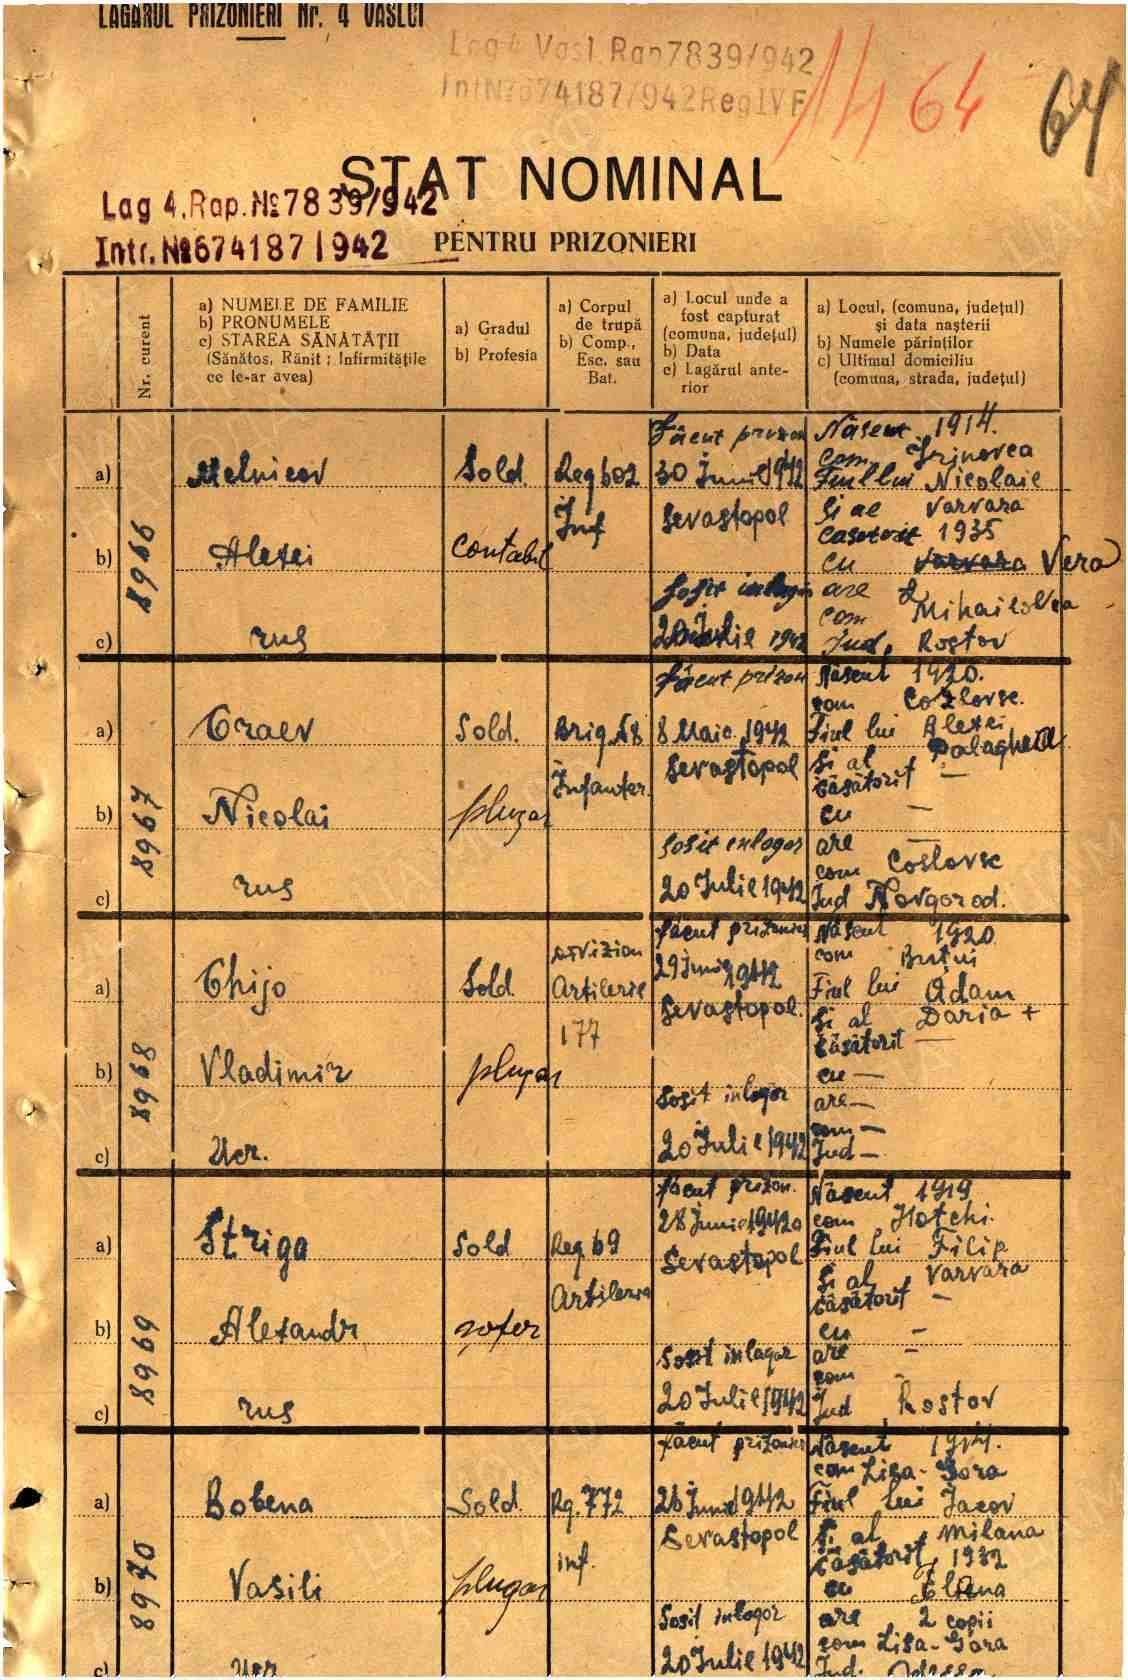 LAGARUL PRIZONIERI Nr. 4 VASLUI
Lag 4 Vasl. Rap 7839/942
Int № 674187/942 Reg IV F
64
64
STAT NOMINAL
Lag 4. Rap. № 7839/942
Intr. № 674187/942
PENTRU PRIZONIERI
Nr. curent
a) NUMELE DE FAMILIE
b) PRONUMELE
c) STAREA SĂNĂTĂȚII
(Sănătos, Rănit; Infirmitățile
ce le-ar avea)
a) Gradul
b) Profesia
a) Corpul
de trupă
b) Comp.,
Esc. sau
Bat.
a) Locul unde a
fost capturat
(comuna, județul)
b) Data
c) Lagărul ante-
rior
a) Locul, (comuna, județul)
și data nașterii
b) Numele părinților
c) Ultimul domiciliu
(comuna, strada, județul)
8966
a) Melnicov
b) Alexei
c) rus
Sold.
contabil
Reg 602
Inf
Făcut prizon
30 Iunie 1942
Sevastopol
Sosit in lagăr
20 Iulie 1942
Născut 1914.
com Irinovca
Fiul lui Nicolaie
și al Varvara
casatorit 1935
cu Varvara Vera
are 2
com Mihailovca
Jud, Rostov
8967
a) Craev
b) Nicolai
c) rus
Sold.
plugar
Brig. 138
Infanter.
Făcut prizon
8 Maio 1942
Sevastopol
Sosit in lagar
20 Iulie 1942
Născut 1920.
com Cozlovsc.
Fiul lui Alexei
și al Palagheia
căsătorit —
cu —
are —
com Coslovsc
Jud Novgorod.
8968
a) Chijo
b) Vladimir
c) Ucr.
Sold.
plugar
Divizion
Artilerie
177
Făcut prizonier
29 Iunie 1942
Sevastopol.
Sosit in lagar
20 Iulie 1942
Născut 1920
com
Fiul lui Adam
și al Daria +
căsătorit —
cu —
are —
com —
Jud —
8969
a) Striga
b) Alexandr
c) rus
Sold
șofer
Reg. 69
Artileria
Făcut prizon.
28 Iunie 1942
Sevastopol
Sosit in lagar
20 Iulie 1942
Născut 1919
com Hotchi.
Fiul lui Filip
și al Varvara
căsătorit —
cu —
are —
com
Jud Rostov
8970
a) Bobena
b) Vasili
c) Ucr
Sold.
plugar
Rg. 772
inf.
Făcut prizonier
26 Iunie 1942
Sevastopol
Sosit in lagar
20 Iulie 1942
Născut 1911.
com Lisa-Gora
Fiul lui Iacov
și al Milana
căsătorit 1932
cu Elena
are 2 copii
com Lisa-Gora
Jud. Odessa